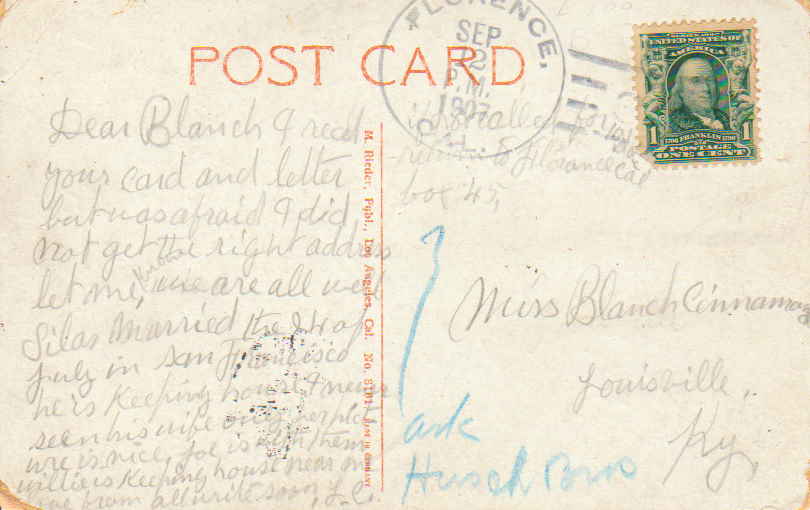 POST CARD
FLORENCE,
SEP
2
P.M.
1907
CAL.
UNITED STATES OF
AMERICA
1
1
FRANKLIN
POSTAGE
ONE CENT
Florance Cal
box 45
Dear Blanch I recd
your card and letter
but was afraid I did
not get the right address
let me we are all well
Silas married the of
July in San Francisco
he is Keeping house I never
seen his wife only her pict
ure is nice, Joe is with them
willie is Keeping house near me
love from all write soon, L.C.
M. Rieder, Publ., Los Angeles, Cal. No. MADE IN GERMANY
Miss Blanch Cinnamon
Louisville,
Ky,
ask
Husch Bros